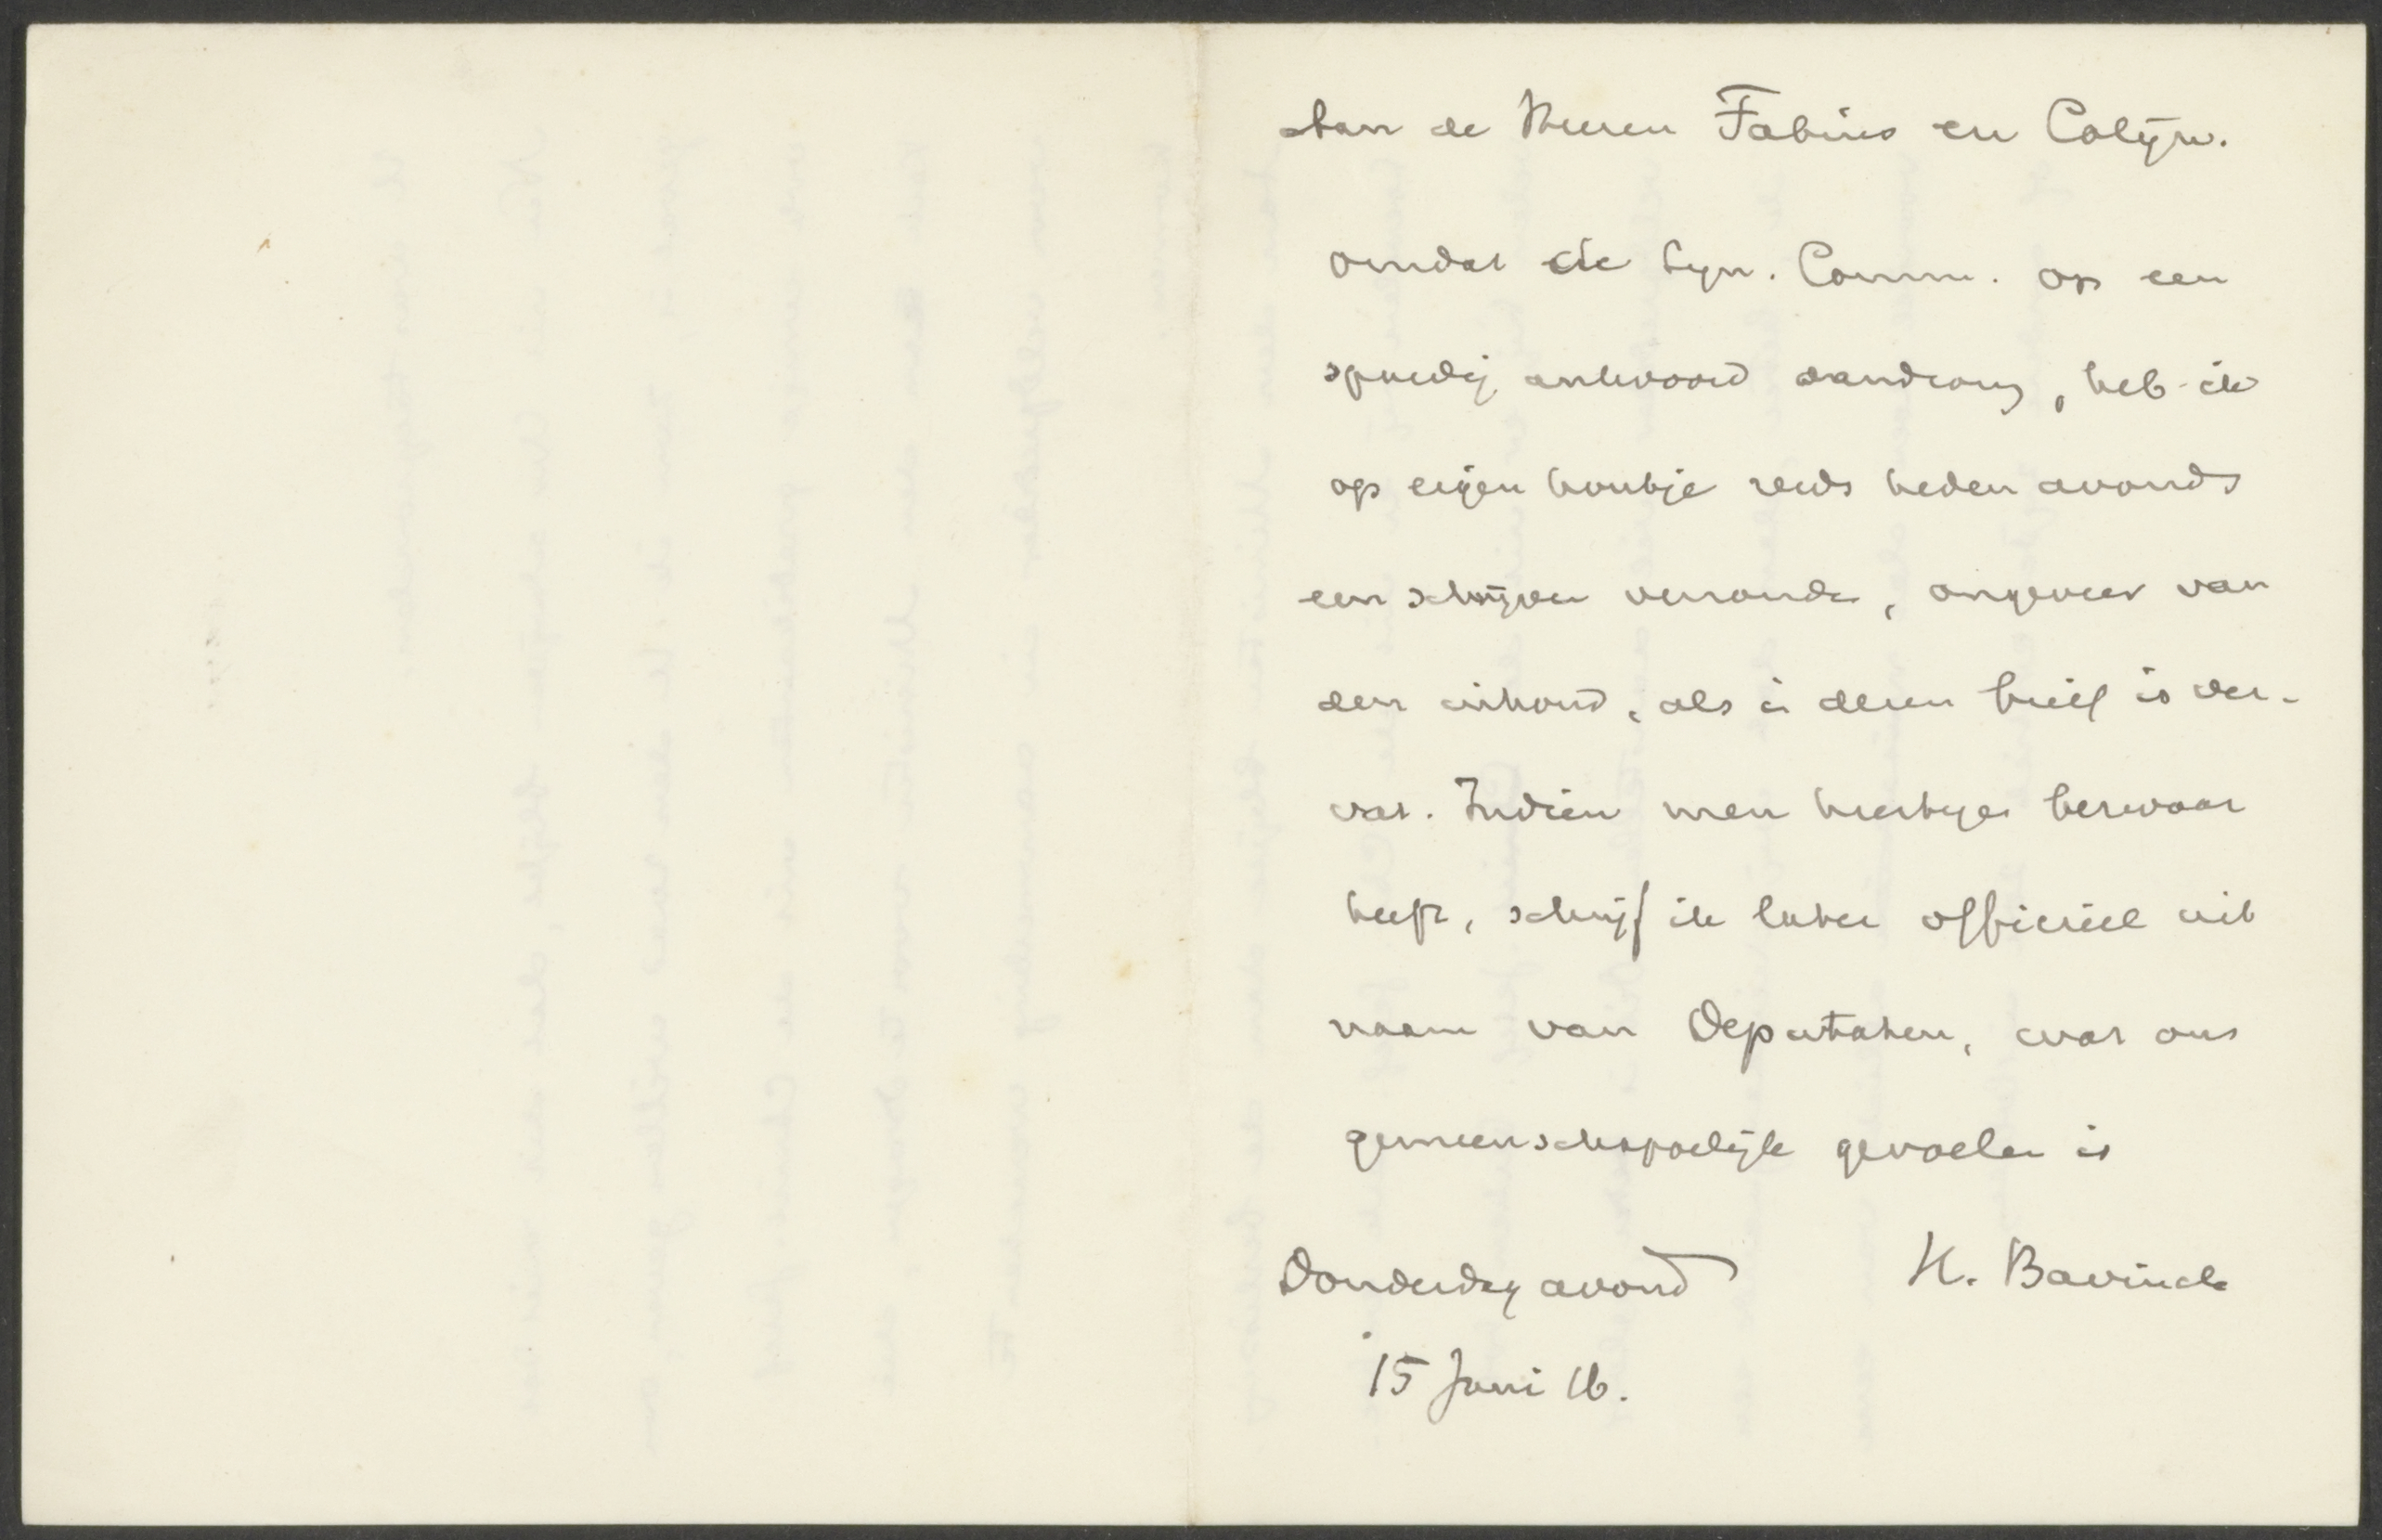 Aan de Heeren Fabius en Colijn.
Omdat de Syn. Comm. op een
spoedig antwoord aandrong, heb ik
op eigen houtje reeds heden avond
een schrijven verzonden, ongeveer van
den inhoud, als in dezen brief is ver-
vat. Indien men hiertegen bezwaar
heeft, schrijf ik later officieel uit
naam van Deputaten, wat ons
gemeenschappelijk gevoelen is
Donderdag avond H. Bavinck
15 Juni 16.